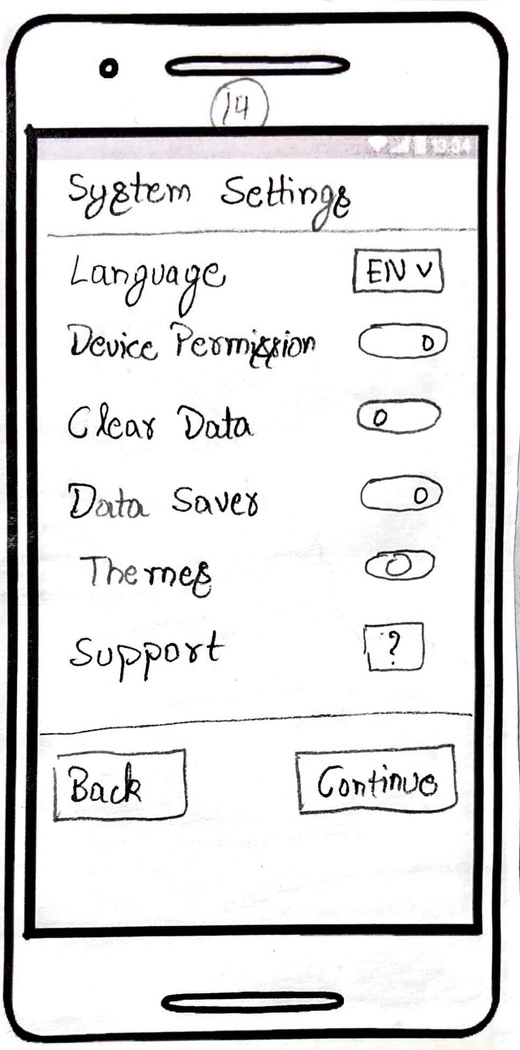 14
13:34
System Settings
Language EN v
Device Permission
Clear Data
Data Saver
Themes
Support ?
Back Continue